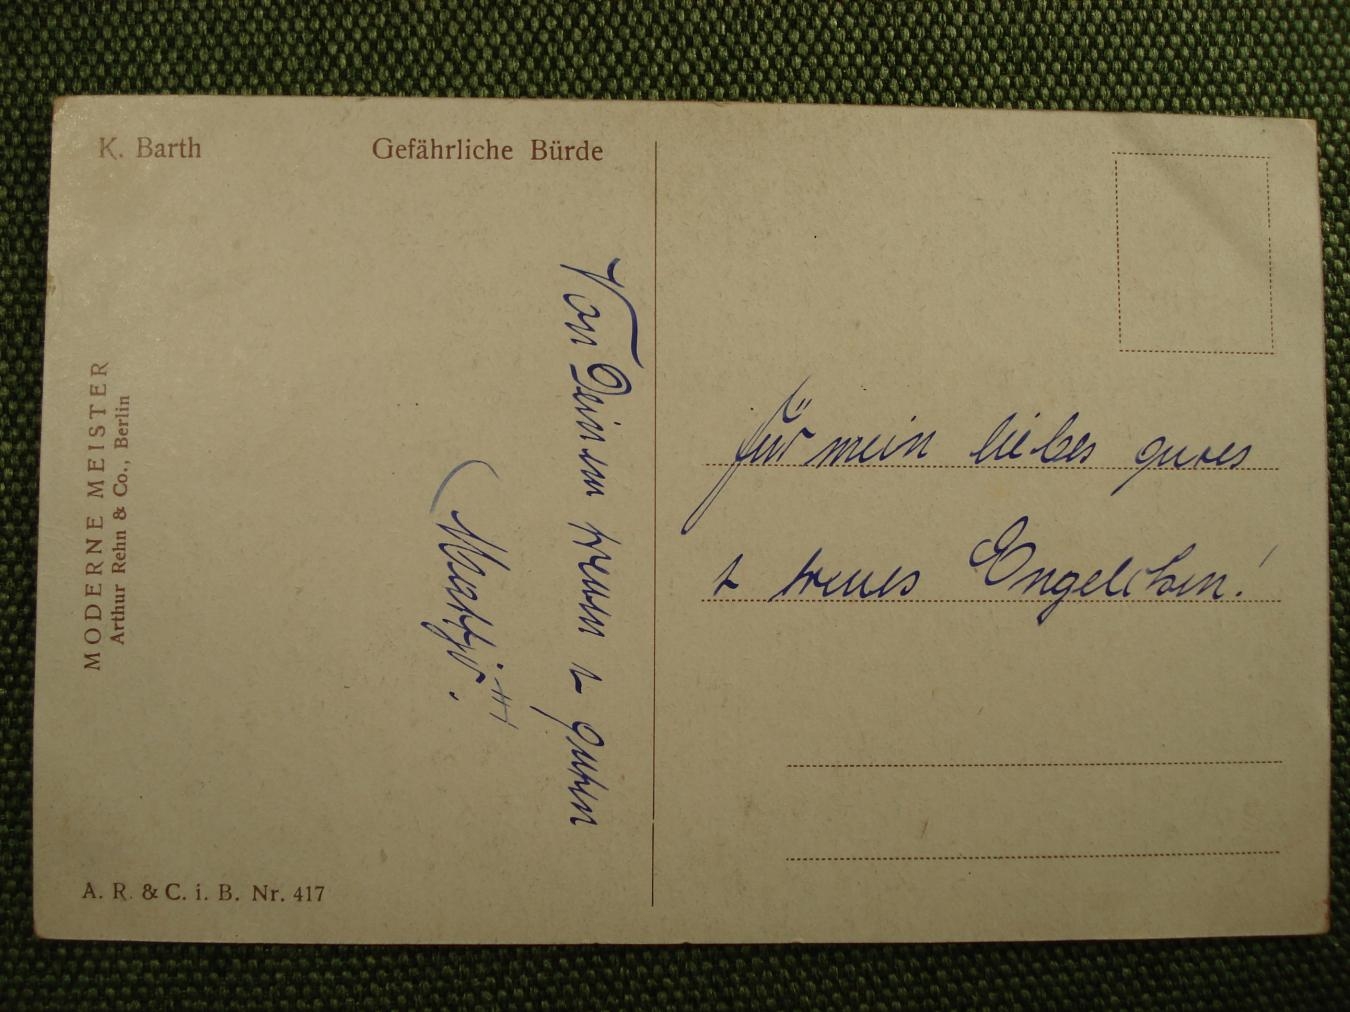 K. Barth
Gefährliche Bürde
MODERNE MEISTER
Arthur Rehn & Co., Berlin
Von Deinem treuen & guten
für mein liebes gutes
& treues Engelchen!
A. R. & C. i. B. Nr. 417